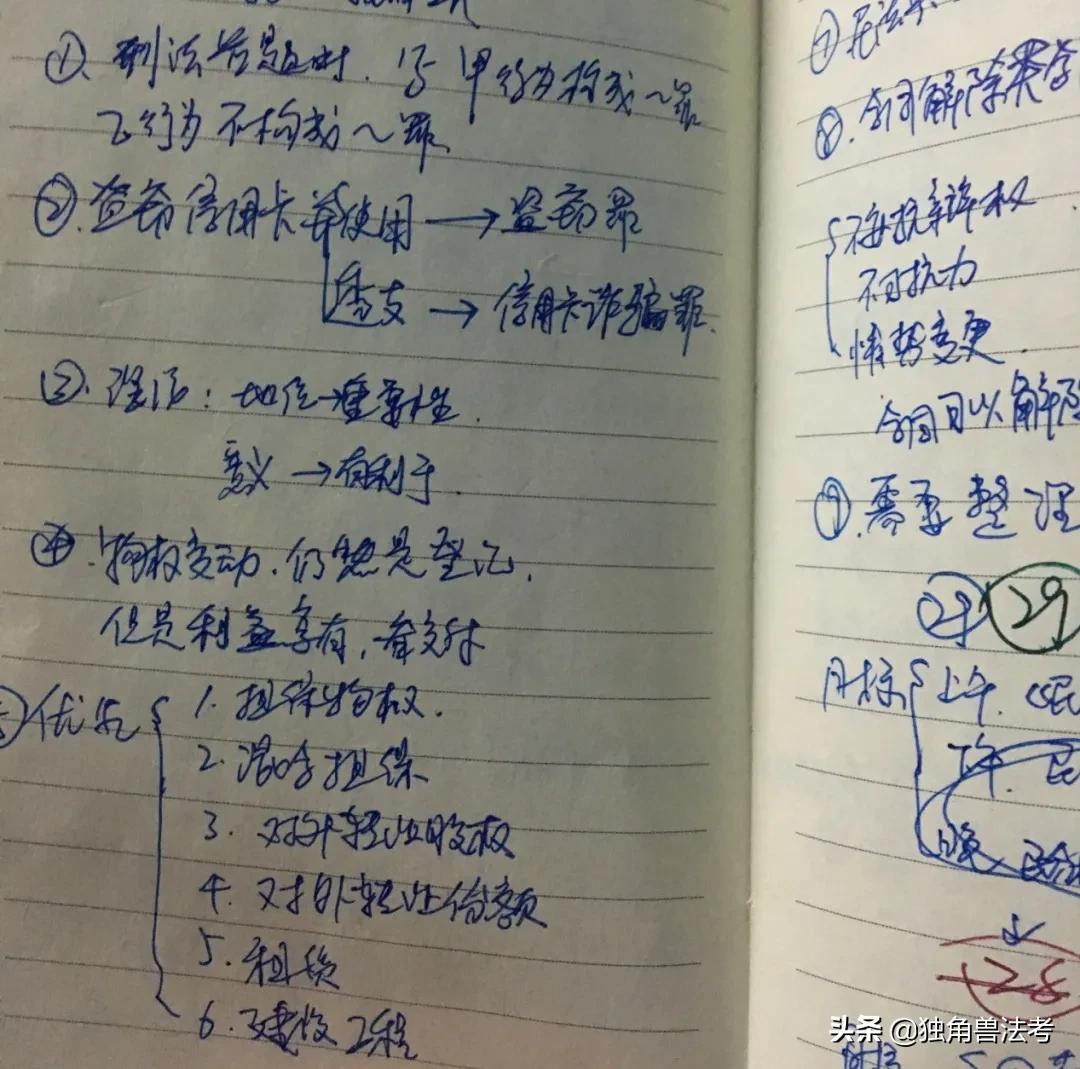 ①、刑法答题时、写甲行为构成~罪
乙行为不构成~罪
②、盗窃信用卡并使用→盗窃罪
透支→信用卡诈骗罪.
③、理论:地位→重要性.
意义→有利于.
④.物权变动、仍然是登记,
但是利益享有,看交付
优先
1.担保物权.
2.混合担保
3.对外转让股权
4.对外转让份额
5.租赁
6.建设工程
⑦民法
⑧.合同解除
抗辩权
不可抗力
情势变更.
合同可以解除
⑨.需要整理
29
目标
上午.
下午.
晚
28
头条 @独角兽法考